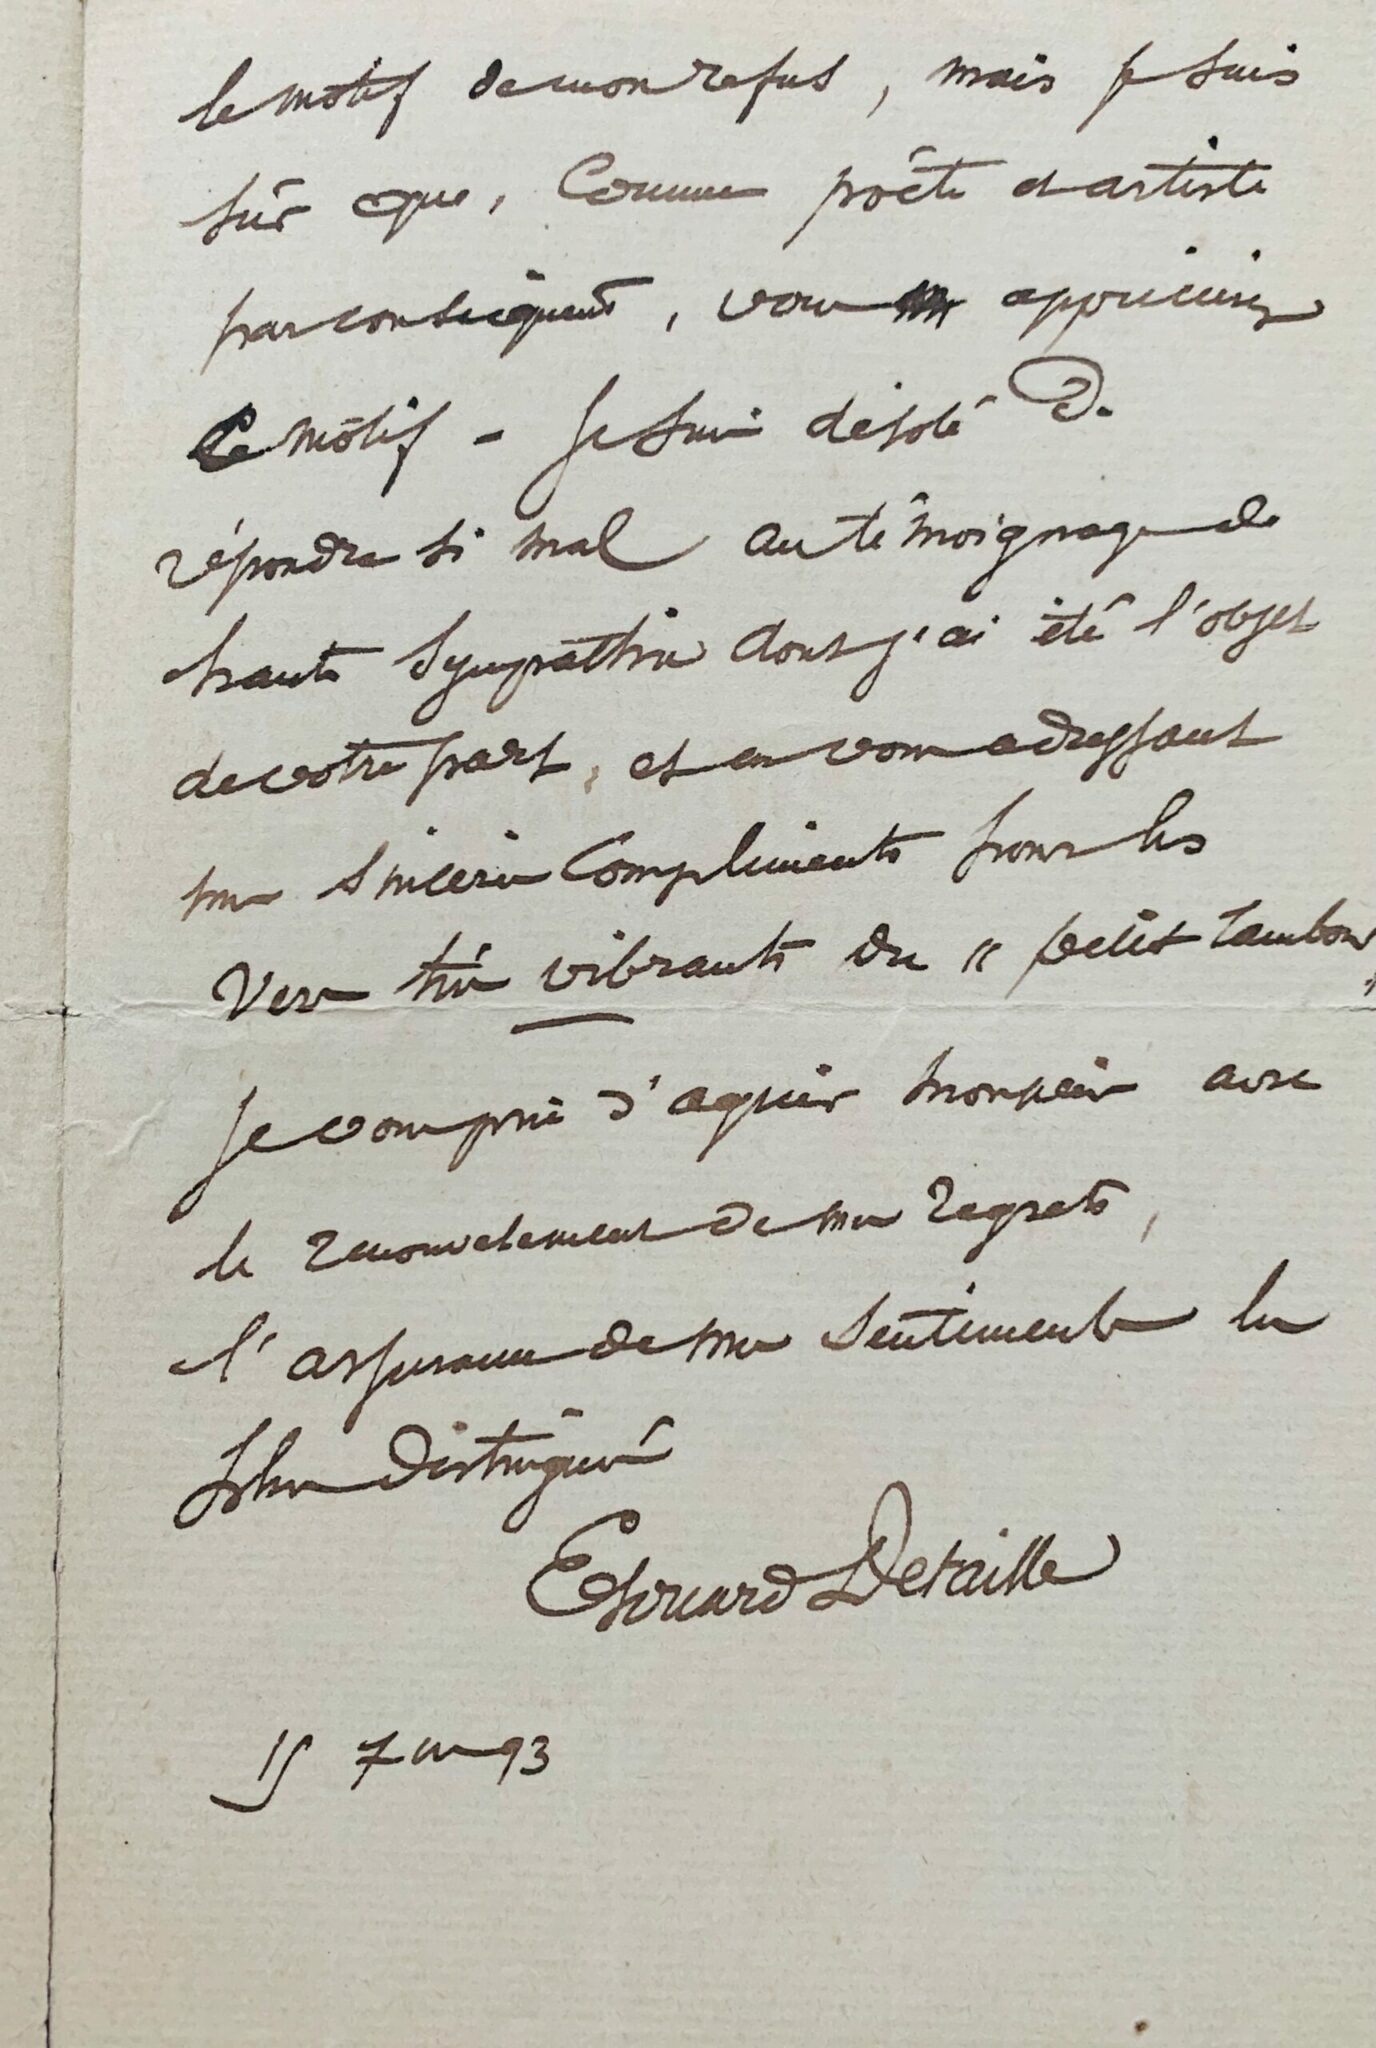 le motif de mon refus, mais je suis
sûr que, comme poète et artiste
par conséquent, vous apprécierez
ce motif - Je suis désolé de
répondre si mal au témoignage de
haute sympathie dont j'ai été l'objet
de votre part, et en vous adressant
mes sincères compliments pour les
vers très vibrants du "petit tambour"
Je vous prie d'agréer monsieur avec
le renouvelement de mes regrets,
l'assurance de mes sentiments les
plus distingués
Edouard Detaille
15 7bre 93